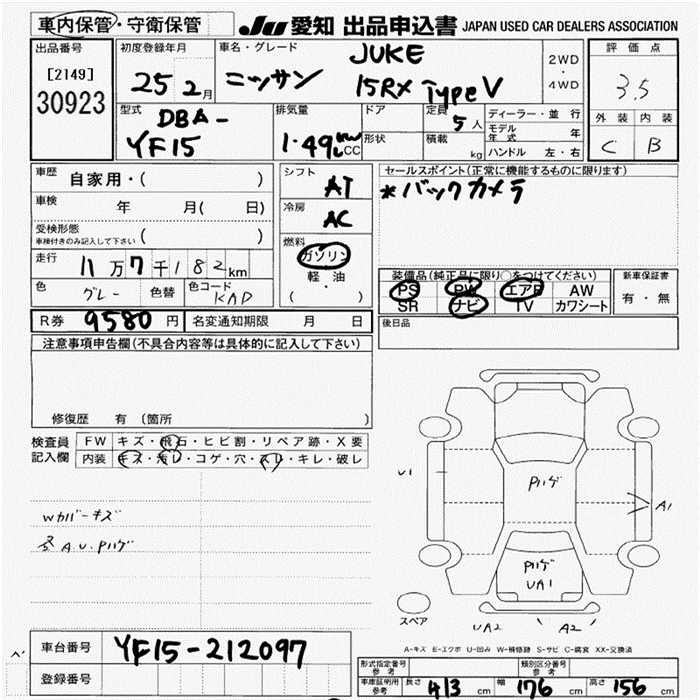 車内保管・守衛保管 JU 愛知 出品申込書 JAPAN USED CAR DEALERS ASSOCIATION
出品番号 初度登録年月 車名・グレード JUKE 2WD・4WD 評価点
[2149] 25 2月 ニッサン 15RX TypeV 3.5
30923
型式 DBA- 排気量 ドア 定員 5人 ディーラー・並行 外装 内装
YF15 1.49 CC 形状 積載 kg モデル年式 年 C B
ハンドル 左・右
車歴 自家用・( ) シフト AT セールスポイント(正常に機能するものに限ります)
車検 年 月( 日) 冷房 AC *バックカメラ
受検形態 ( )
車検付きのみ記入して下さい
燃料 ガソリン
走行 11万7千182km 軽・油
(・) 装備品(純正品に限り○をつけてください) 新車保証書
色 グレー 色替 色コード KAD PS PW エアB AW 有・無
SR ナビ TV カワシート
R券 9580円 名変通知期限 月 日 後日品
注意事項申告欄(不具合内容等は具体的に記入して下さい)
修復歴 有 (箇所 )
検査員 FW キズ・飛石・ヒビ割・リペア跡・X要
記入欄 内装 キズ・汚レ・コゲ・穴・スレ・キレ・破レ
U1 Pハゲ A1
Wカバーキズ
A.U.Pハゲ
Pハゲ
UA1
スペア UA2 A2
A-キズ E-エクボ U-凹み W-補修跡 S-サビ C-腐食 XX-交換済
車台番号 YF15-212097
登録番号
形式指定番号 参考 類別区分番号 参考
車庫証明用 参考 長さ 413 cm 幅 176 cm 高さ 156 cm